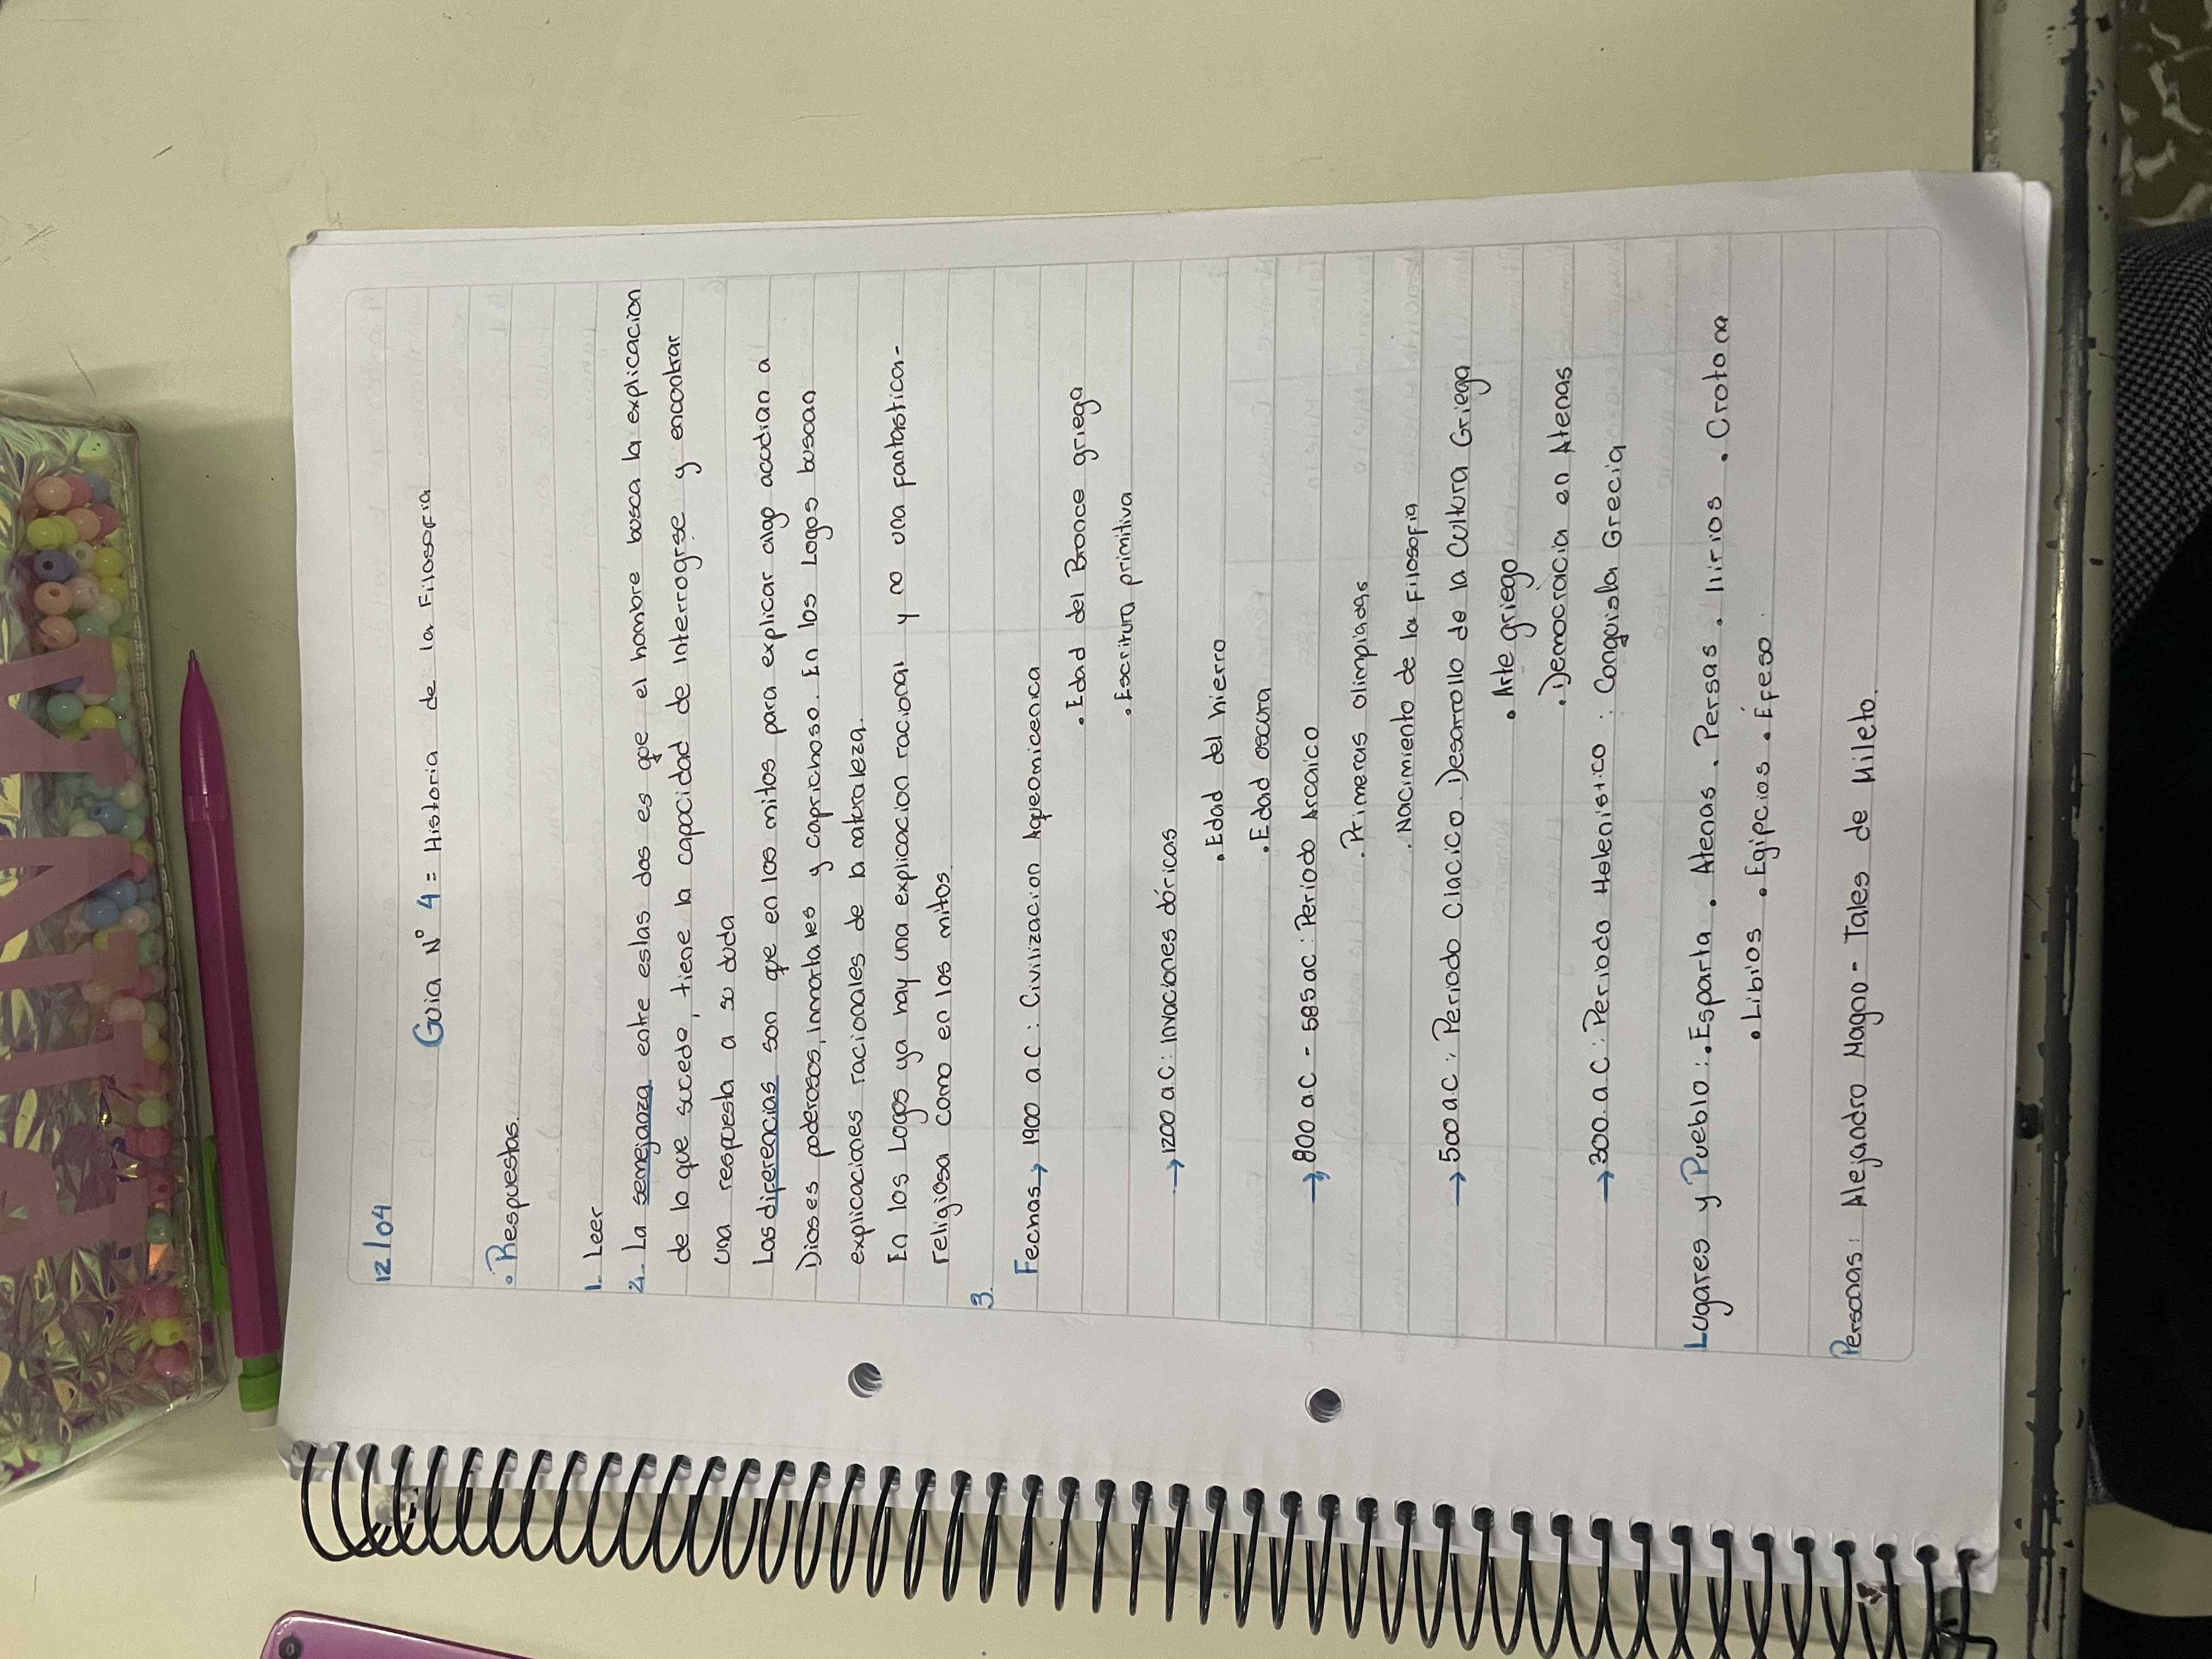 12/04
Guia N° 4 = Historia de la Filosofia
• Respuestas.
1. Leer
2. La semejanza entre estas dos es que el hombre busca la explicacion
de lo que sucede, tiene la capacidad de Interrogrse y encontrar
una respuesta a su duda
Las diferencias son que en los mitos para explicar algo acudian a
Dioses poderosos, Inmortales y caprichoso. En los Logos buscan
explicaciones racionales de la naturaleza.
En los Logos ya hay una explicacion racional y no una fantastica-
religiosa como en los mitos.
3.
Fechas → 1900 a.C : Civilizacion Aqueomicenica
• Edad del Bronce griego
• Escritura primitiva
→ 1200 a.C : Invaciones dóricas
• Edad del hierro
• Edad oscura
→ 800 a.C - 585 ac : Periodo Arcaico
• Primeras olimpiadas
• Nacimiento de la Filosofia
→ 500 a.c : Periodo Clacico. Desarrollo de la Cultura Griega
• Arte griego
• Democracia en Atenas
→ 300 a.C : Periodo Helenistico : Conquista Grecia
Lugares y Pueblo : • Esparta • Atenas • Persas • Ilirios • Crotona
• Libios • Egipcios • Éfeso.
Personas : Alejandro Magno - Tales de Mileto.